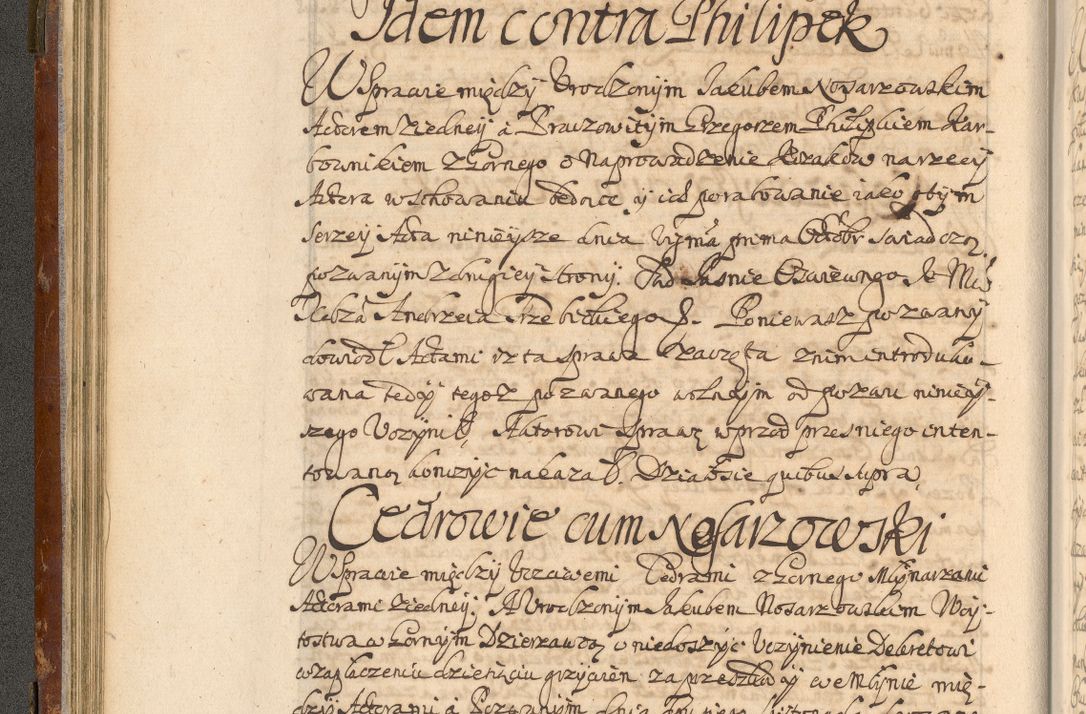 Idem contra Philipek
W Sprawie między Urodzonym Jakubem Nosarzowskim
Actorem z iedney a Pracowitym Grzegorzem Philipkiem Kar-
bownikiem z Gornego o Naprowadzenie Kozaków na rzeczy
Actora w schowaniu będące y ich porabowanie iako o tym
Serzey Acta ninieysze dnia prima Octobr swiadczą
pozwanym z drugiey strony. Sąd Jasnie Oswieconego Je Mci
Xdza Andrzeia Trzebickiego. Poniewasz pozwany
dowiodł Actami isz ta sprawa zaczęta z nim introduko-
wana tedy tegoz pozwanego wolnym od pozwu niniey-
szego Uczynił, Aktorowi sprawę wprzod przes niego inten-
towaną konczyc nakazał. Działosie quibus supra
Cedrowie cum Nosarzowski
W Sprawie między Uczciwemi Cedrami z Gornego Młynarzami
Actorami z iedney, A Urodzonym Jakubem Nosarzowskim Woy-
tostwa w Gornym Dzierzawcą o niedoszyc Uczynienie Dekretowi
w zapłaczeniu dziesiąciu grzywien za przedzby we Młynie mię-
dzy Actorami a Pozwanym dnia